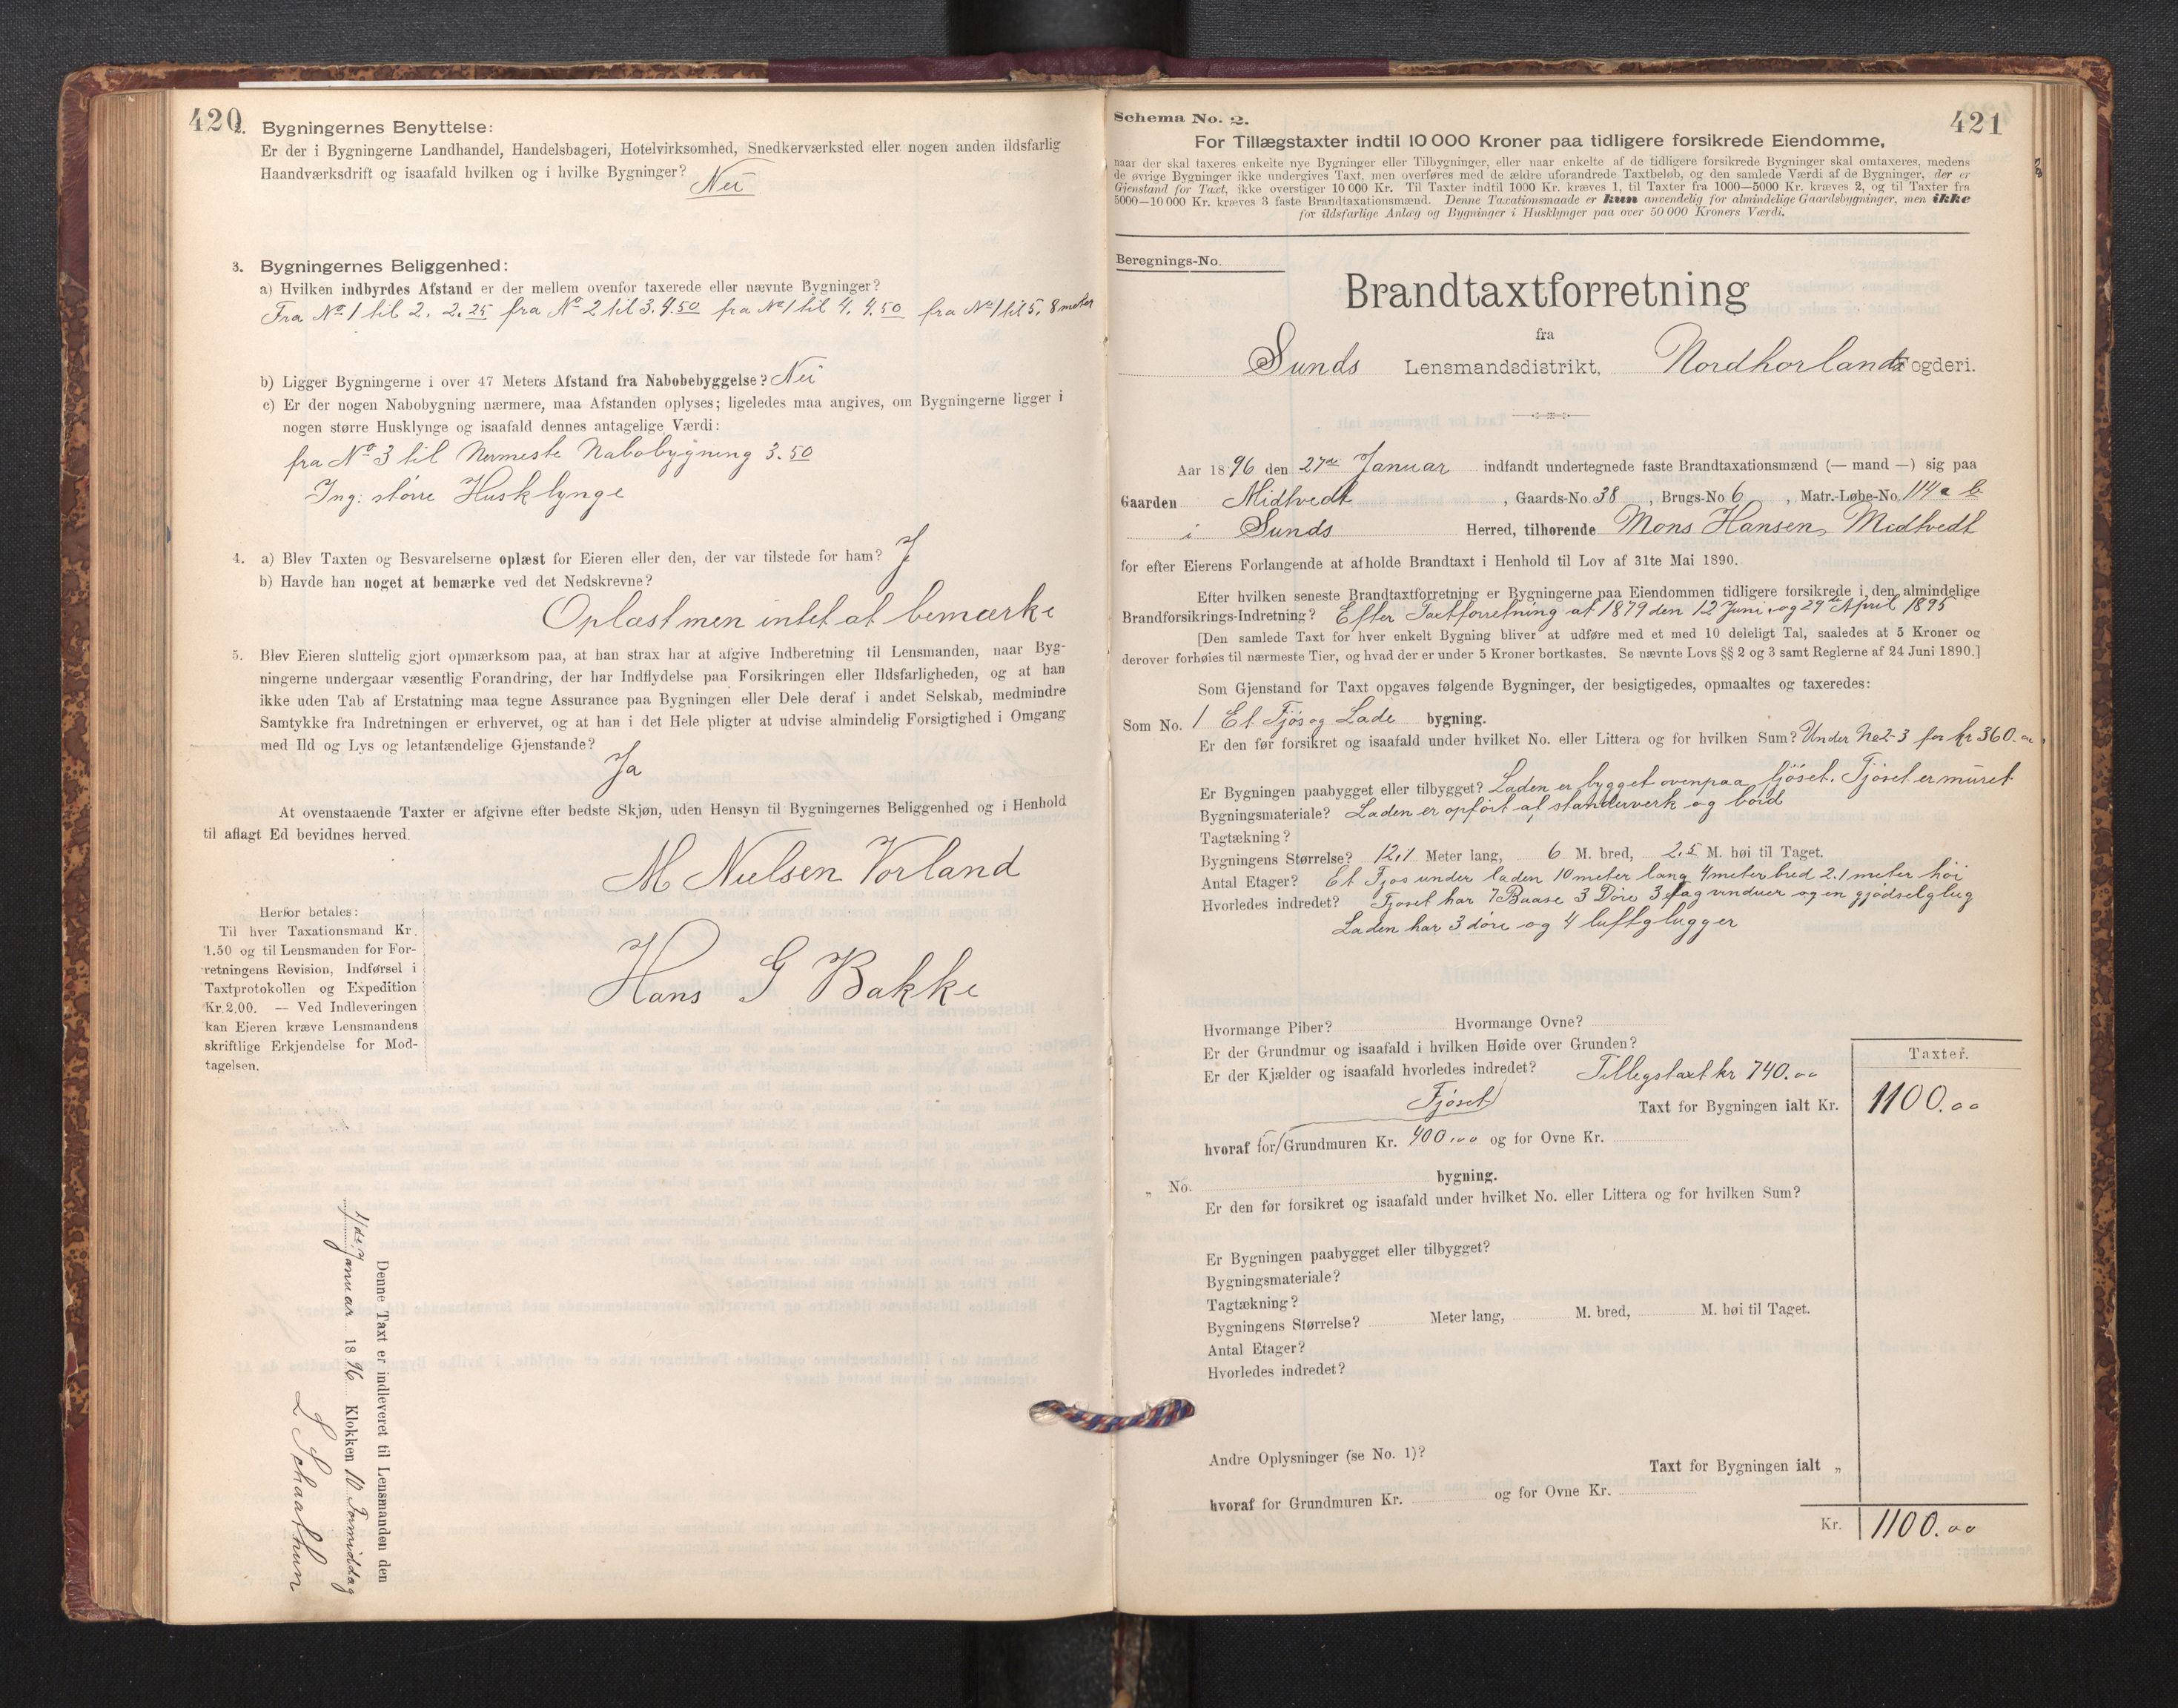 420
2. Bygningernes Benyttelse:
Er der i Bygningerne Landhandel, Handelsbageri, Hotelvirksomhed, Snedkerværksted eller nogen anden ildsfarlig
Haandværksdrift og isaafald hvilken og i hvilke Bygninger? Nei
3. Bygningernes Beliggenhed:
a) Hvilken indbyrdes Afstand er der mellem ovenfor taxerede eller nævnte Bygninger?
Fra No 1 til 2. 2.25 fra No 2 til 3. 4.50 fra No 1 til 4. 4.50 fra No 1 til 5. 8 meter
b) Ligger Bygningerne i over 47 Meters Afstand fra Nabobebyggelse? Nei
c) Er der nogen Nabobygning nærmere, maa Afstanden oplyses; ligeledes maa angives, om Bygningerne ligger i
nogen større Husklynge og isaafald dennes antagelige Værdi:
fra No 3 til Nermeste Nabobygning 3.50
Ing: större Husklynge
4. a) Blev Taxten og Besvarelserne oplæst for Eieren eller den, der var tilstede for ham? J
b) Havde han noget at bemærke ved det Nedskrevne?
Oplæst men intet at bemærke
5. Blev Eieren sluttelig gjort opmærksom paa, at han strax har at afgive Indberetning til Lensmanden, naar Byg-
ningerne undergaar væsentlig Forandring, der har Indflydelse paa Forsikringen eller Ildsfarligheden, og at han
ikke uden Tab af Erstatning maa tegne Assurance paa Bygningen eller Dele deraf i andet Selskab, medmindre
Samtykke fra Indretningen er erhvervet, og at han i det Hele pligter at udvise almindelig Forsigtighed i Omgang
med Ild og Lys og letantændelige Gjenstande?
Ja
At ovenstaaende Taxter er afgivne efter bedste Skjøn, uden Hensyn til Bygningernes Beliggenhed og i Henhold
til aflagt Ed bevidnes herved.
M Nielsen Vorland
Hans G Bakke
Herfor betales:
Til hver Taxationsmand Kr.
1.50 og til Lensmanden for For-
retningens Revision, Indførsel i
Taxtprotokollen og Expedition
Kr. 2.00. — Ved Indleveringen
kan Eieren kræve Lensmandens
skriftlige Erkjendelse for Mod-
tagelsen.
Denne Taxt er indleveret til Lensmanden den
Januar 1896 Klokken 10 Formiddag
L Schaathun
421
Schema No. 2.
For Tillægstaxter indtil 10 000 Kroner paa tidligere forsikrede Eiendomme,
naar der skal taxeres enkelte nye Bygninger eller Tilbygninger, eller naar enkelte af de tidligere forsikrede Bygninger skal omtaxeres, medens
de øvrige Bygninger ikke undergives Taxt, men overføres med de ældre uforandrede Taxtbeløb, og den samlede Værdi af de Bygninger, der er
Gjenstand for Taxt, ikke overstiger 10 000 Kr. Til Taxter indtil 1000 Kr. kræves 1, til Taxter fra 1000—5000 Kr. kræves 2, og til Taxter fra
5000—10 000 Kr. kræves 3 faste Brandtaxationsmænd. Denne Taxationsmaade er kun anvendelig for almindelige Gaardsbygninger, men ikke
for ildsfarlige Anlæg og Bygninger i Husklynger paa over 50 000 Kroners Værdi.
Beregnings-No.
Brandtaxtforretning
fra
Sunds Lensmandsdistrikt, Nordhorlands Fogderi.
Aar 1896 den 27de Januar indfandt undertegnede faste Brandtaxationsmænd (— mand —) sig paa
Gaarden Midtvedt, Gaards-No. 38, Brugs-No 6, Matr.-Løbe-No. 114 a b
i Sunds Herred, tilhørende Mons Hansen Midtvedt
for efter Eierens Forlangende at afholde Brandtaxt i Henhold til Lov af 31te Mai 1890.
Efter hvilken seneste Brandtaxtforretning er Bygningerne paa Eiendommen tidligere forsikrede i den almindelige
Brandforsikrings-Indretning? Efter Taxtforretning af 1879 den 12 Juni og 29de April 1895
[Den samlede Taxt for hver enkelt Bygning bliver at udføre med et med 10 deleligt Tal, saaledes at 5 Kroner og
derover forhøies til nærmeste Tier, og hvad der er under 5 Kroner bortkastes. Se nævnte Lovs §§ 2 og 3 samt Reglerne af 24 Juni 1890.]
Som Gjenstand for Taxt opgaves følgende Bygninger, der besigtigedes, opmaaltes og taxeredes:
Som No. 1 Et Fjøs og Lade bygning.
Er den før forsikret og isaafald under hvilket No. eller Littera og for hvilken Sum? Under No 2-3 for kr 360.00
Er Bygningen paabygget eller tilbygget? Laden er bygget ovenpaa fjöset. Fjöset er muret
Bygningsmateriale? Laden er opfört af standerverk og bord
Tagtækning?
Bygningens Størrelse? 12,1 Meter lang, 6 M. bred, 2,5 M. høi til Taget.
Antal Etager? Et Fjøs under laden 10 meter lang 4 meter bred 2.1 meter höi
Hvorledes indredet? Fjöset har 7 Baase 3 Döre 3 fag vinduer og en gjödselglug
Laden har 3 döre og 4 luftglugger
Hvormange Piber? Hvormange Ovne?
Er der Grundmur og isaafald i hvilken Høide over Grunden?
Er der Kjælder og isaafald hvorledes indredet? Tillegstaxt kr 740.00
Taxter.
Fjöset
Taxt for Bygningen ialt Kr. 1100.00
hvoraf for Grundmuren Kr. 400.00 og for Ovne Kr.
„ No. bygning.
Er den før forsikret og isaafald under hvilket No. eller Littera og for hvilken Sum?
Er Bygningen paabygget eller tilbygget?
Bygningsmateriale?
Tagtækning?
Bygningens Størrelse? Meter lang, M. bred, M. høi til Taget.
Antal Etager?
Hvorledes indredet?
Andre Oplysninger (se No. 1)?
Taxt for Bygningen ialt „
hvoraf for Grundmuren Kr. og for Ovne Kr.
Kr. 1100.00